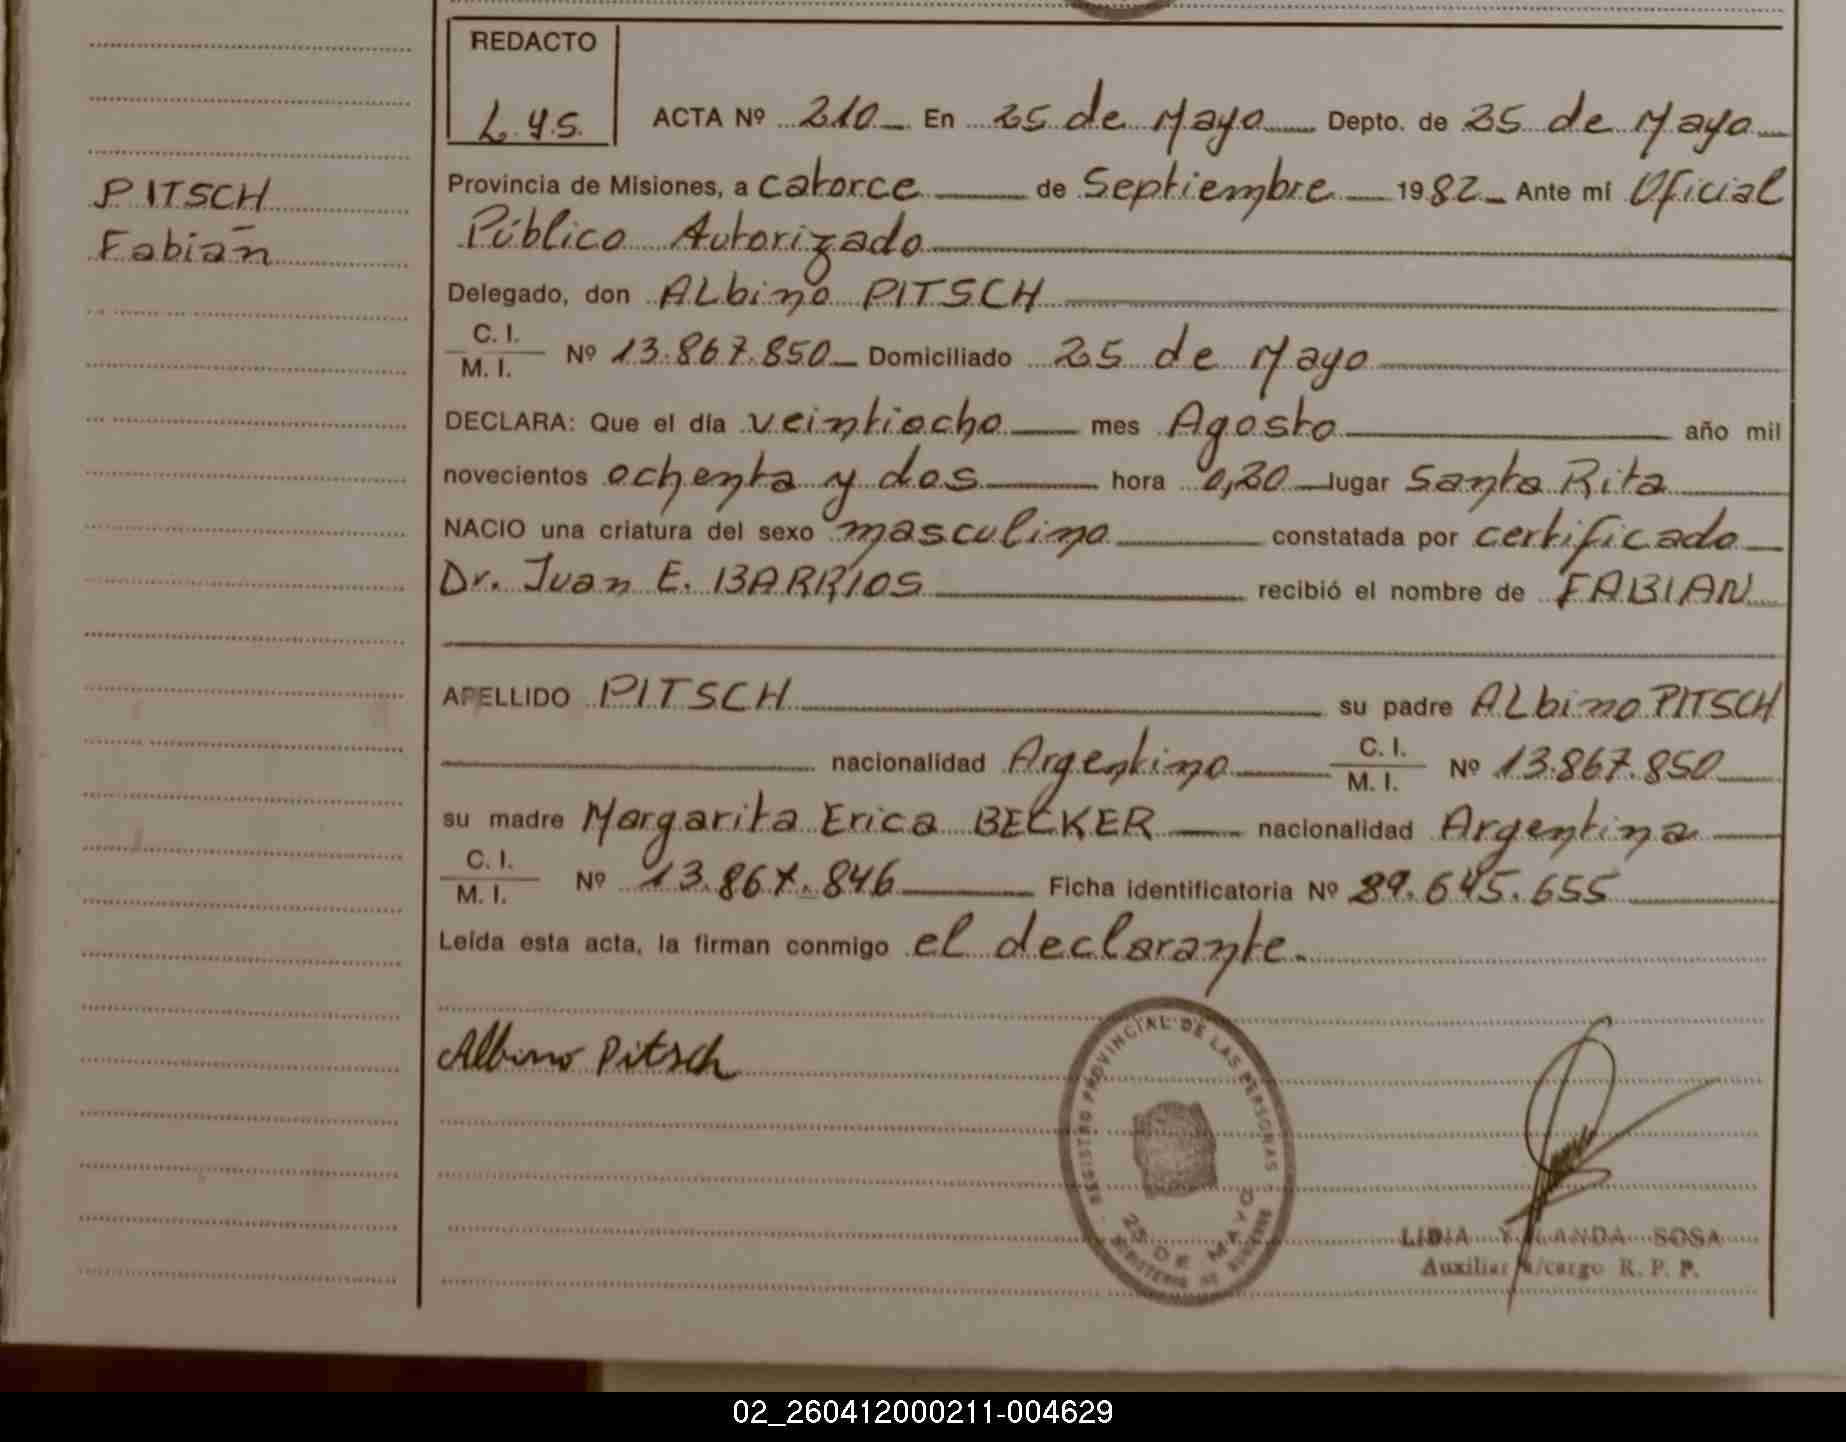 REDACTO
L.Y.S.
ACTA Nº 210 En 25 de Mayo Depto. de 25 de Mayo
Provincia de Misiones, a catorce de Septiembre 1982 Ante mí Oficial
Público Autorizado
PITSCH
Fabián
Delegado, don ALbino PITSCH
C. I.
M. I. Nº 13.867.850 Domiciliado 25 de Mayo
DECLARA: Que el día veintiocho mes Agosto año mil
novecientos ochenta y dos hora lugar Santa Rita
NACIO una criatura del sexo masculino constatada por certificado
Dr. Juan E. BARRIOS recibió el nombre de FABIAN
APELLIDO PITSCH su padre ALbino PITSCH
nacionalidad Argentino C. I.
M. I. Nº 13.867.850
su madre Margarita Erica BECKER nacionalidad Argentina
C. I.
M. I. Nº 13.867.846 Ficha identificatoria Nº 29.645.655
Leída esta acta, la firman conmigo el declarante.
Albino Pitsch
REGISTRO PROVINCIAL DE LAS PERSONAS
25 DE MAYO
MINISTERIO DE GOBIERNO
LIDIA YOLANDA SOSA
Auxiliar a/cargo R. P. P.
02_260412000211-004629